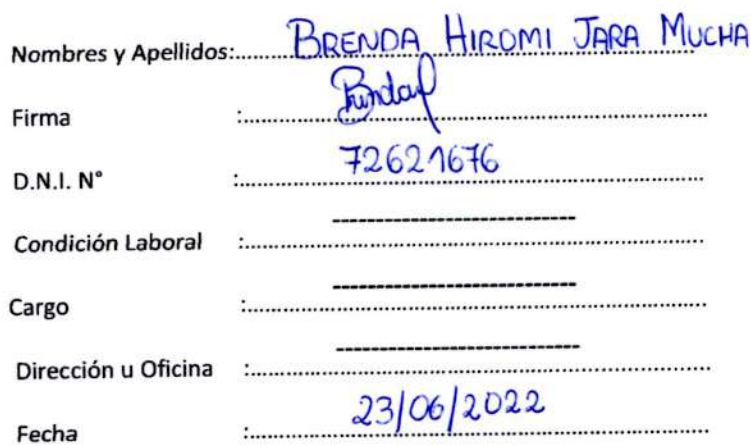 Nombres y Apellidos:..........BRENDA HIROMI JARA MUCHA
Firma :..........
D.N.I. N° :..........72621676
Condición Laboral :..........----------------------------
Cargo :..........----------------------------
Dirección u Oficina :..........----------------------------
Fecha :..........23/06/2022